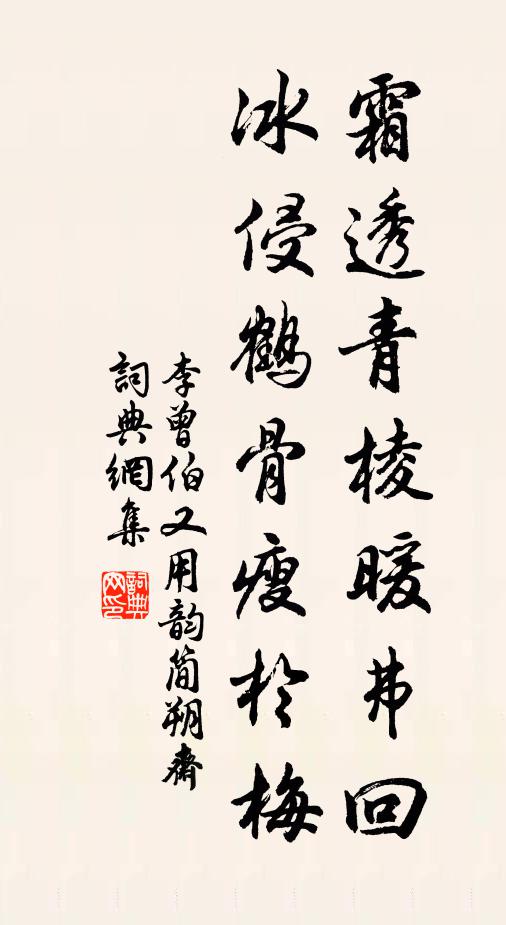 霜透青棱暖弗回
冰侵鶴骨瘦於梅
李曾伯又用韵简朔齋
詞典網集
詞典網印